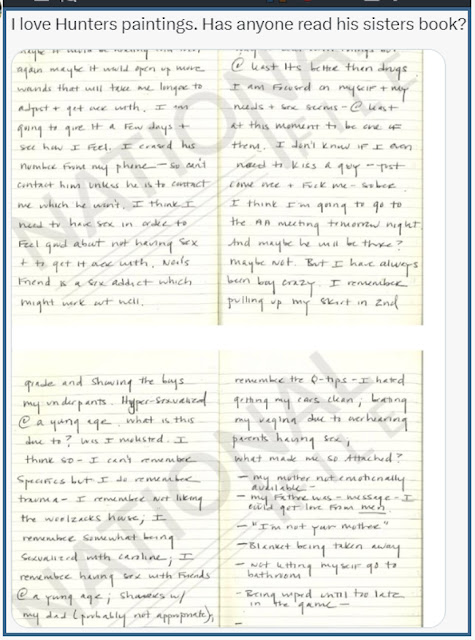 I love Hunters paintings. Has anyone read his sisters book?
again maybe it would open up more
wounds that will take me longer to
adjust + get over with. I am
going to give it a few days +
see how I feel. I erased his
number from my phone — so can't
contact him unless he is to contact
me which he won't. I think I
need to have sex in order to
feel good about not having sex
+ to get it over with. Neals
Friend is a sex addict which
might work out well.
@ least its better then drugs
I am focused on myself + my
needs + sex seems - @ least
at this moment to be one of
them. I don't know if I even
need to kiss a guy - just
come over + Fuck me - sober
I think I'm going to go to
the AA meeting tomorrow night.
And maybe he will be there?
maybe not. But I have always
been boy crazy. I remember
pulling up my skirt in 2nd
grade and showing the boys
my underpants. Hyper-sexualized
@ a young age. what is this
due to? Was I molested. I
think so - I can't remember
specifics but I do remember
trauma - I remember not liking
the woolzacks house; I
remember somewhat being
sexualized with caroline; I
remember having sex with Friends
@ a young age; showers w/
my dad (probably not appropriate),
remember the Q-tips - I hated
getting my ears clean;
my vagina due to overhearing
parents having sex;
What made me so Attached?
- my mother not emotionally
available -
- my Father was - message - I
could get love from men
- "I'm not your mother"
- Blanket being taken away
- Not letting myself go to
bathroom
- Being until too late
in the game -
-
NATIONAL
NATIONAL